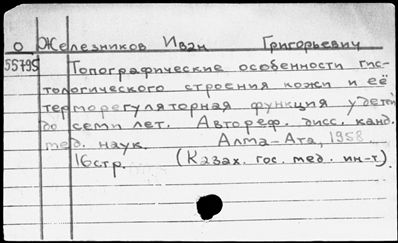 О Железников Иван Григорьевич
55795 Топографические особенности гис-
тологического строения кожи и её
терморегуляторная функция у детей
до семи лет. Автореф. дисс. канд.
мед. наук. Алма-Ата, 1958.
16стр. (Казах. гос. мед. ин-т).